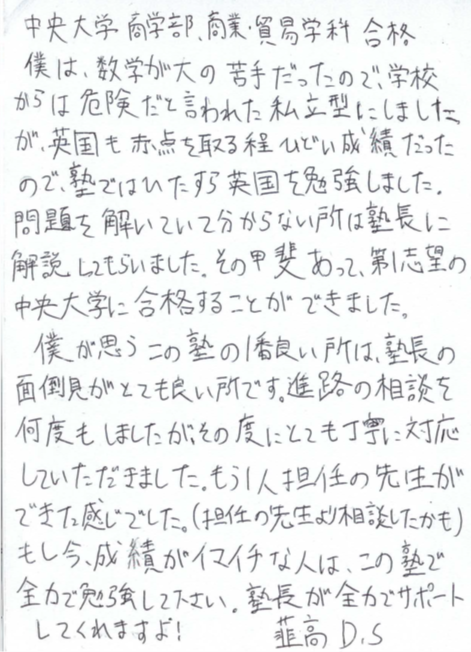 中央大学 商学部、商業・貿易学科 合格
僕は、数学が大の苦手だったので、学校
からは危険だと言われた私立型にしました
が、英国も赤点を取る程ひどい成績だった
ので、塾ではひたすら英国を勉強しました。
問題を解いていて分からない所は塾長に
解説してもらいました。その甲斐あって、第1志望の
中央大学に合格することができました。
僕が思うこの塾の1番良い所は、塾長の
面倒見がとても良い所です。進路の相談を
何度もしましたが、その度にとても丁寧に対応
していただきました。もう1人担任の先生が
できた感じでした。(担任の先生より相談したかも)
もし今、成績がイマイチな人は、この塾で
全力で勉強して下さい。塾長が全力でサポート
してくれますよ! 韮高 D.S